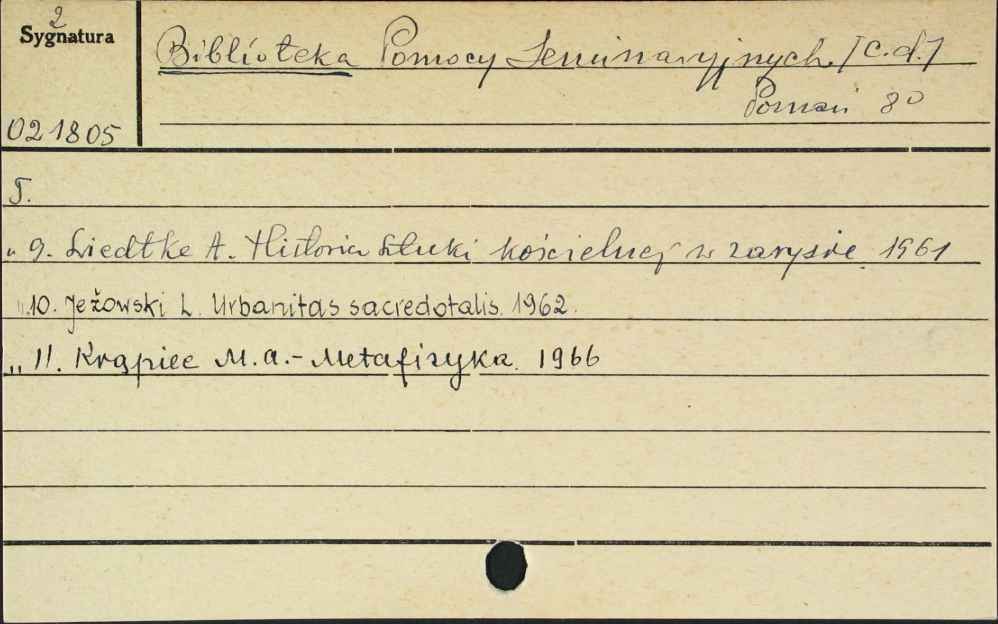 2
Sygnatura
Biblioteka Pomocy Seminaryjnych /c.d./
Poznań 8°
021805
T.
" 9. Liedtke A. Historia sztuki kościelnej w zarysie 1961
" 10. Jeżowski L. Urbanitas sacredotalis. 1962.
" 11. Krąpiec M.a. - Metafizyka. 1966